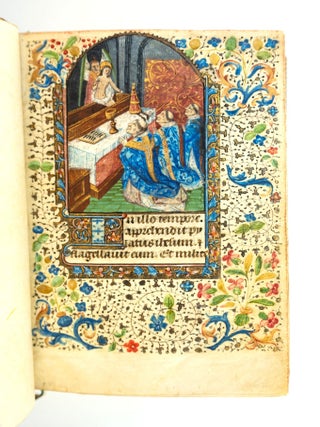 In illo tempore.
apprehendit py
latus ihesum et
flagellavit eum. Et mili